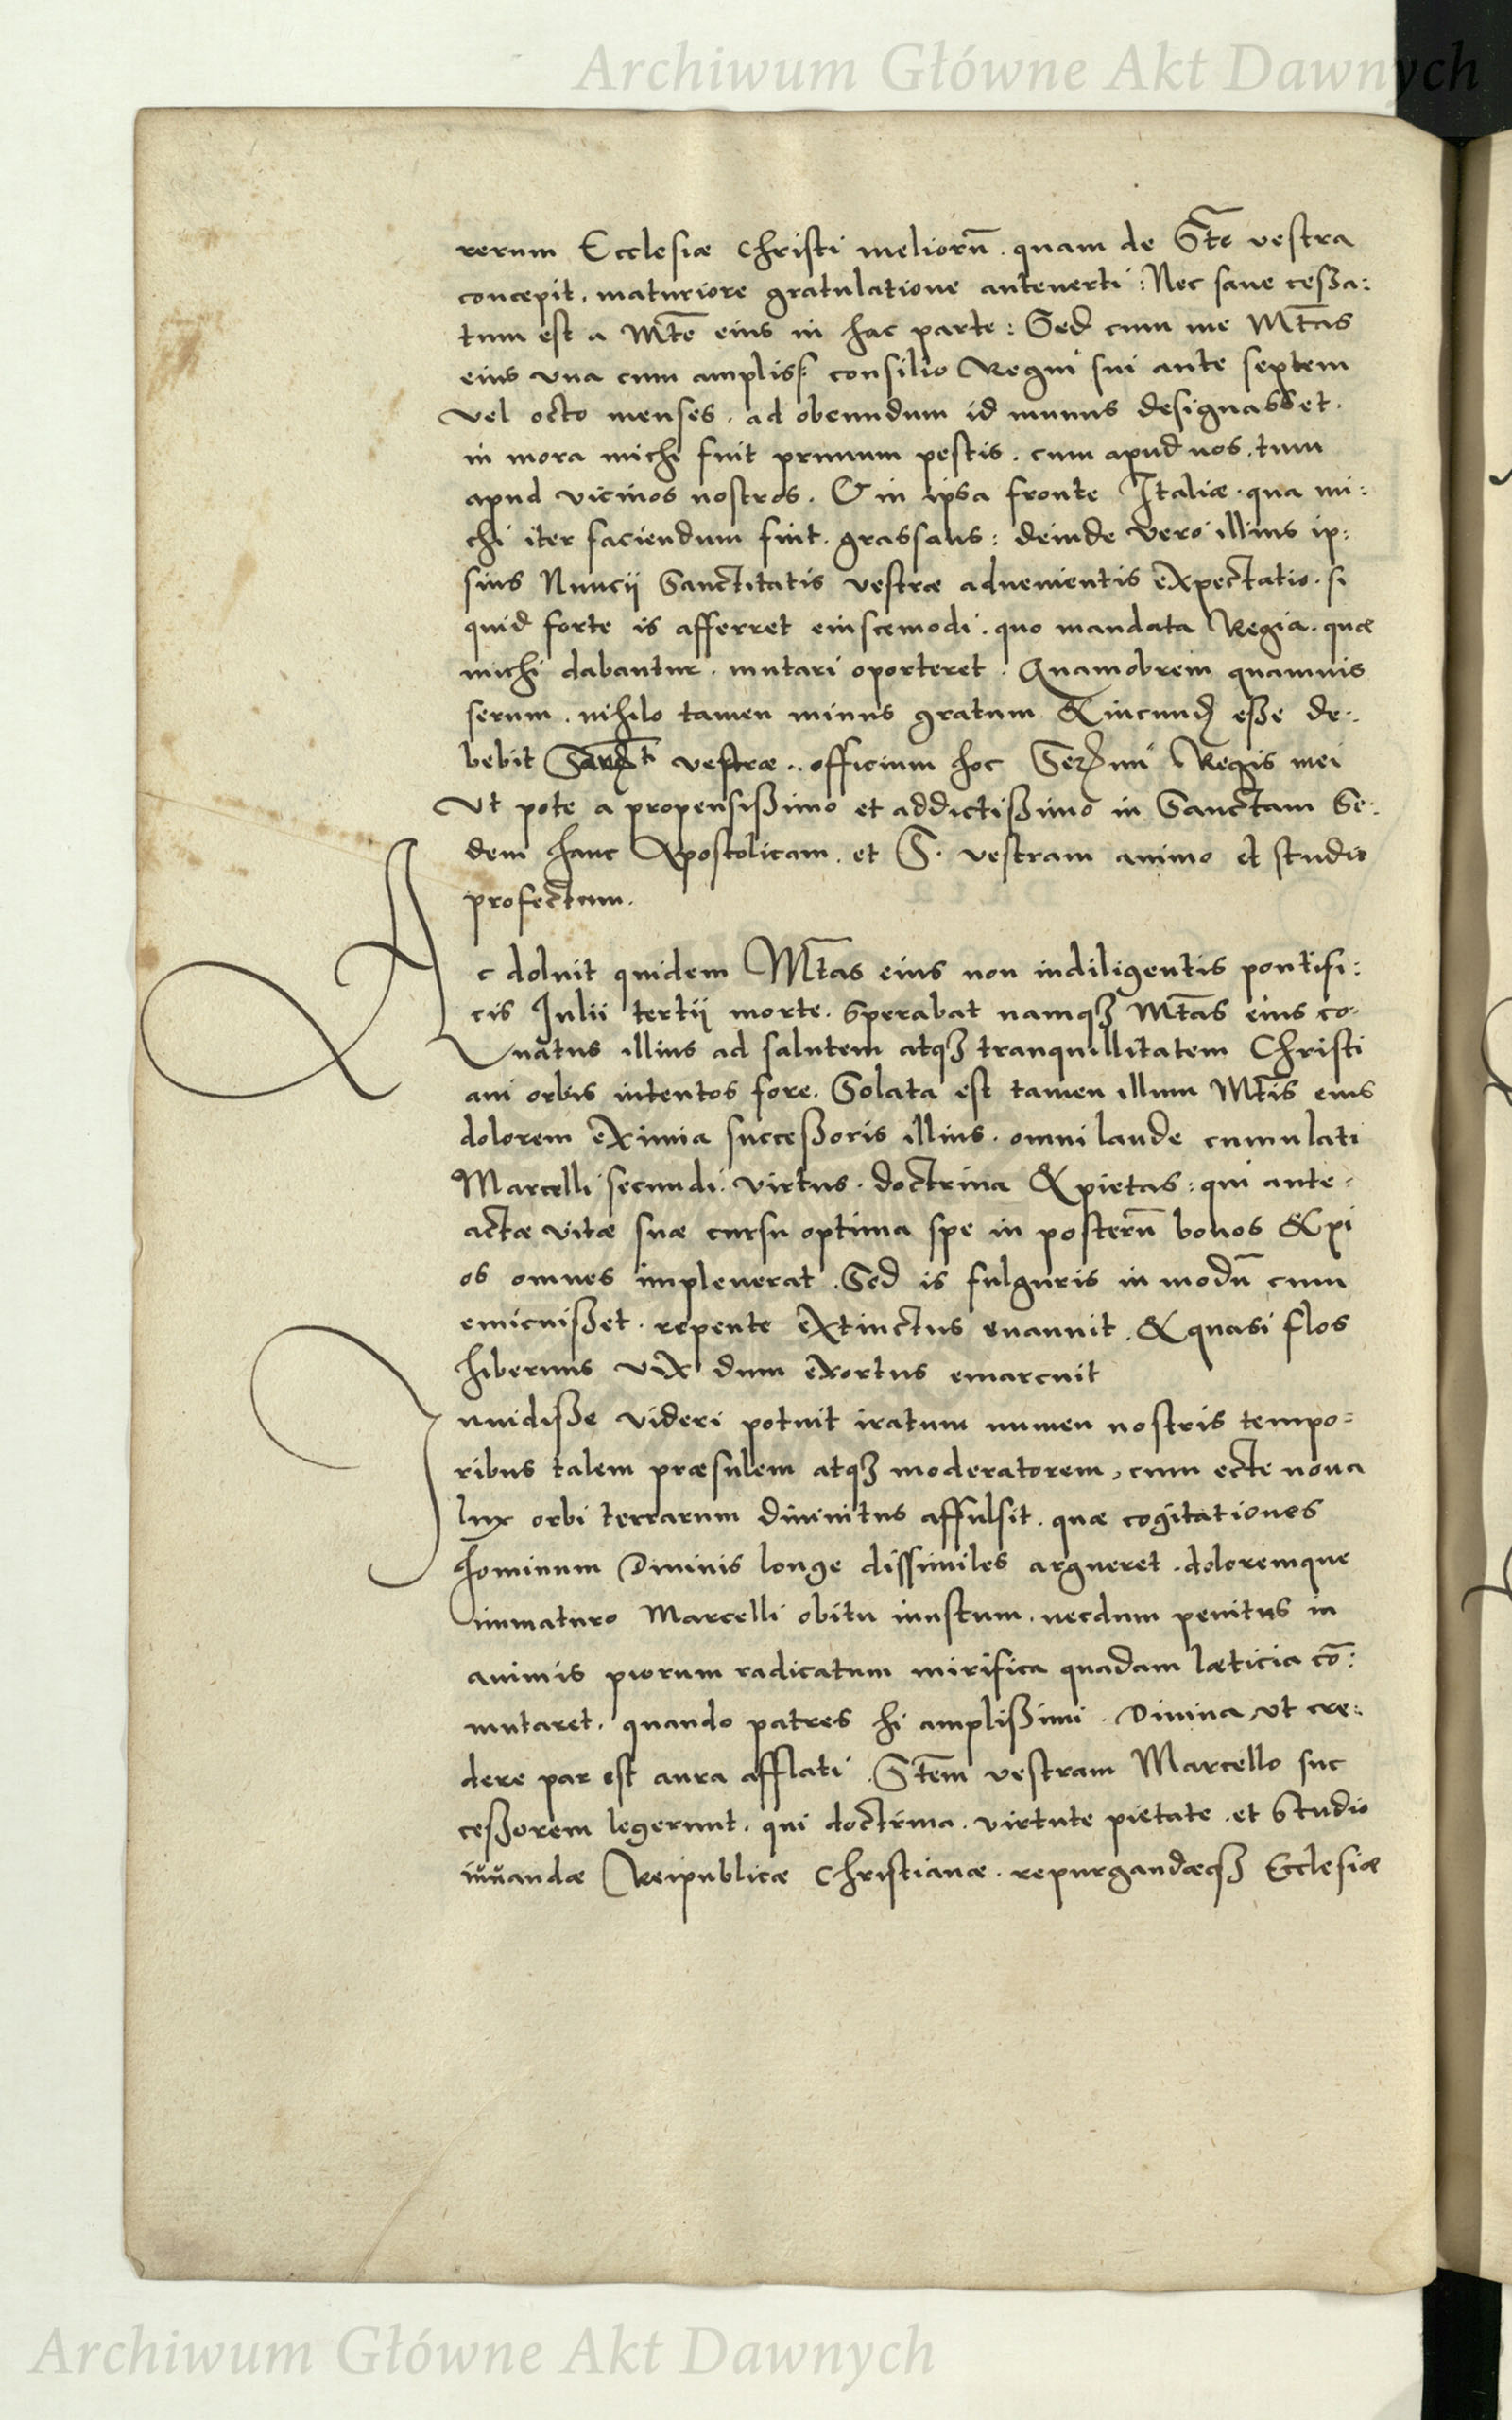 Archiwum Główne Akt Dawnych
rerum Ecclesiæ Christi meliorū. quam de S̄te vestra
concepit, maturiore gratulatione anteverti: Nec sane cessa:
tum est a M̄te eius in hac parte: Sed cum me M̄tas
eius una cum ampliss: consilio Regni sui ante septem
vel octo menses. ad obeundum id munus designasset.
in mora michi fuit primum pestis. cum apud nos, tum
apud vicinos nostros. & in ipsa fronte Italiæ. qua mi:
chi iter faciendum fuit. grassans: deinde vero illius ip:
sius Nuncij Sanctitatis vestræ advenientis expectatio. si
quid forte is afferret eiuscemodi. quo mandata Regia. quæ
michi dabantur. mutari oporteret. Quamobrem quamuis
serum. nihilo tamen minus gratum & iucund esse de:
bebit Sanctti vestræ.. officium hoc Sermi Regis mei
Ut pote a propensissimo et addictissimo in Sanctam Se:
dem hanc Apostolicam. et S. vestram animo et studio
profectum.
Ac doluit quidem M̄tas eius non indiligentis pontifi:
cis Julii tertij morte. sperabat namqȝ M̄tas eius co-
natus illius ad salutem atqȝ tranquillitatem Christi
ani orbis intentos fore. Solata est tamen illum M̄tis eius
dolorem eximia successoris illius. omni laude cumulati
Marcelli secundi. virtus. doctrina & pietas: qui ante-
actæ vitæ suæ cursu optima spe in posterū bonos & pi
os omnes impleuerat. Sed is fulguris in modū cum
emicuisset. repente extinctus euanuit. & quasi flos
hibernus vix dum exortus emarcuit
Inuidisse videri potuit iratum numen nostris tempo=
ribus talem præsulem atqȝ moderatorem, cum ecte noua
lux orbi terrarum diuinitus affulsit. quæ cogitationes
hominum Diuinis longe dissimiles argueret. doloremque
immaturo Marcelli obitu inustum. necdum penitus in
animis piorum radicatum mirifica quadam læticia cō:
mutaret. quando patres hi amplissimi. Diuina, ut cre:
dere par est aura afflati. S̄tem vestram Marcello suc
cessorem legerunt. qui doctrina. virtute pietate. et studio
iuuandæ Reipublicæ Christianæ. repurgandæqȝ Ecclesiæ
Archiwum Główne Akt Dawnych